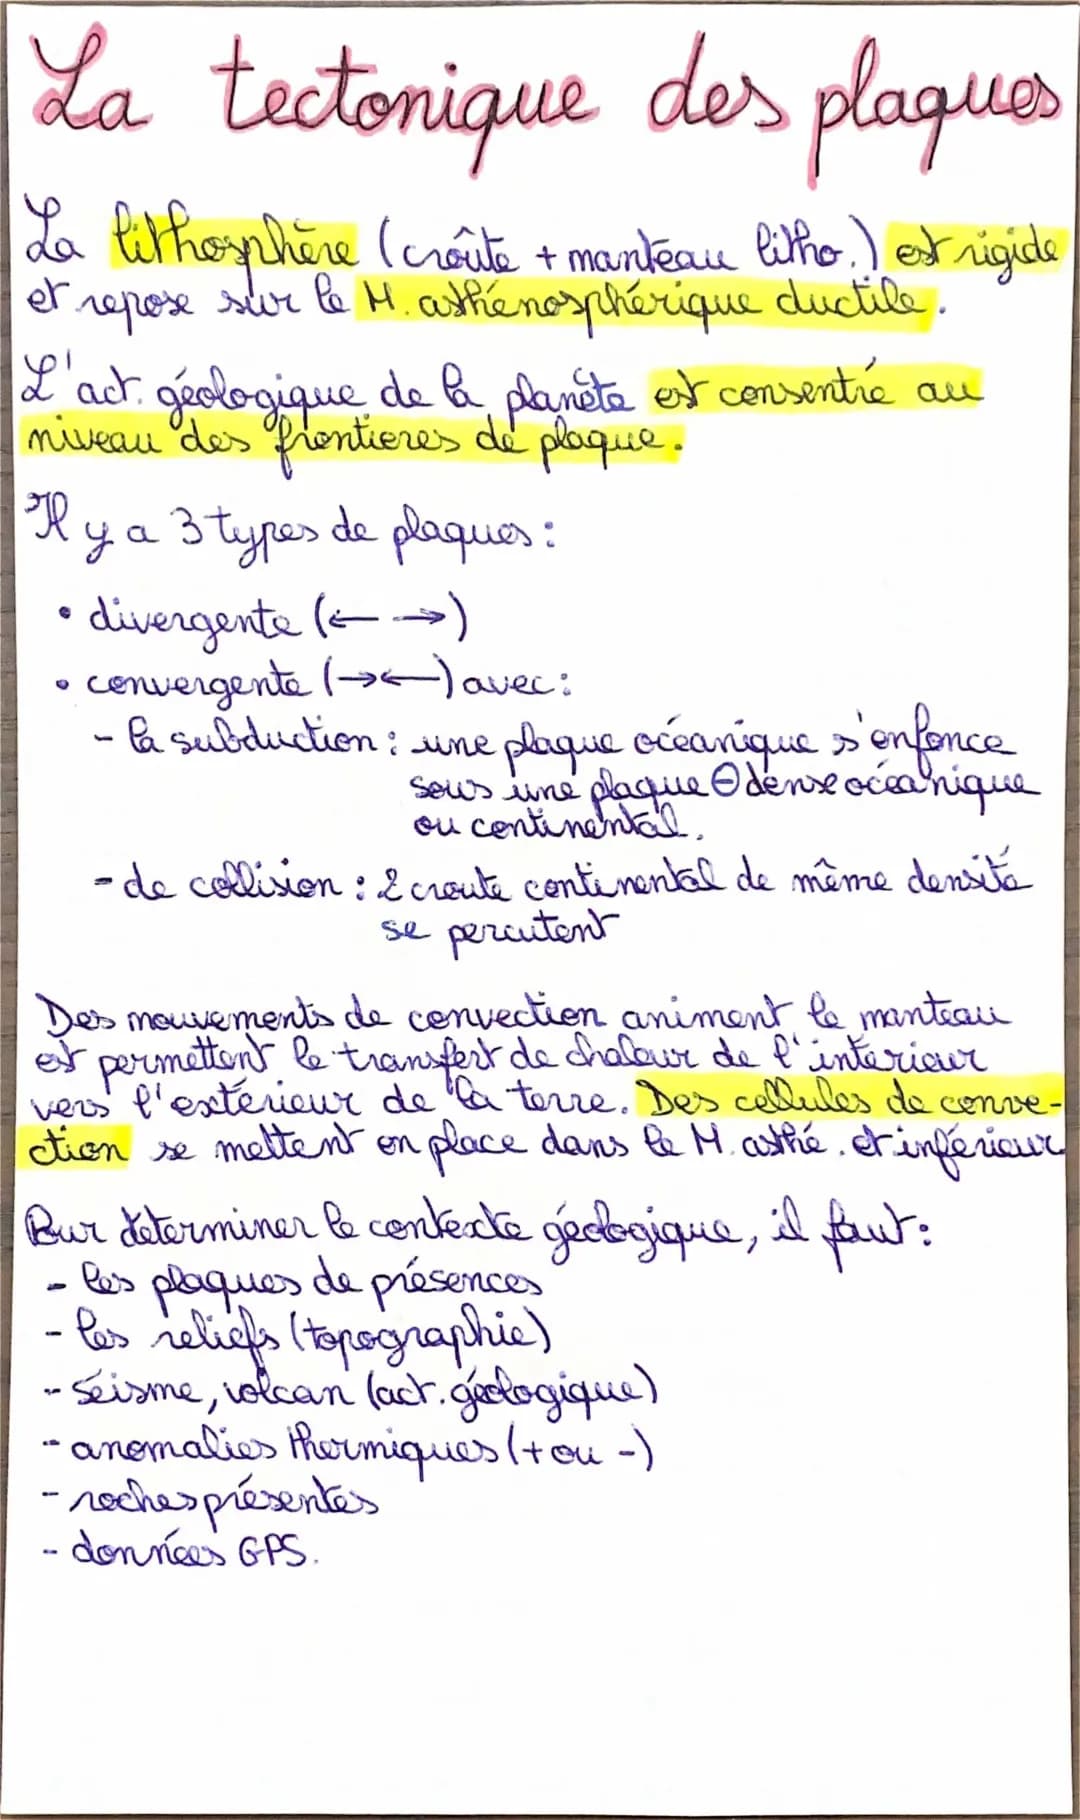 La tectonique des plaques
La lithosphère (croûte + manteau litho.) est rigide
et repose sur le M. asthénosphérique ductile.
L'act. géologique de la planète est consentré au
niveau des frontieres de plaque.
Il y a 3 types de plaques :
• divergente (← →)
• convergente (→←) avec :
- la subduction : une plaque océanique s'enfonce
sous une plaque ⊖ dense océanique
ou continental.
- de collision : 2 croute continental de même densité
se percutent
Des mouvements de convection animent le manteau
est permettent le transfert de chaleur de l'interieur
vers l'extérieur de la terre. Des cellules de conve-
ction se mettent en place dans le M. asthé. et inférieur
Pour déterminer le contexte géologique, il faut :
- les plaques de présences
- les reliefs (topographie)
- séisme, volcan (act. géologique)
- anomalies thermiques (+ ou -)
- roches présentes
- données GPS.